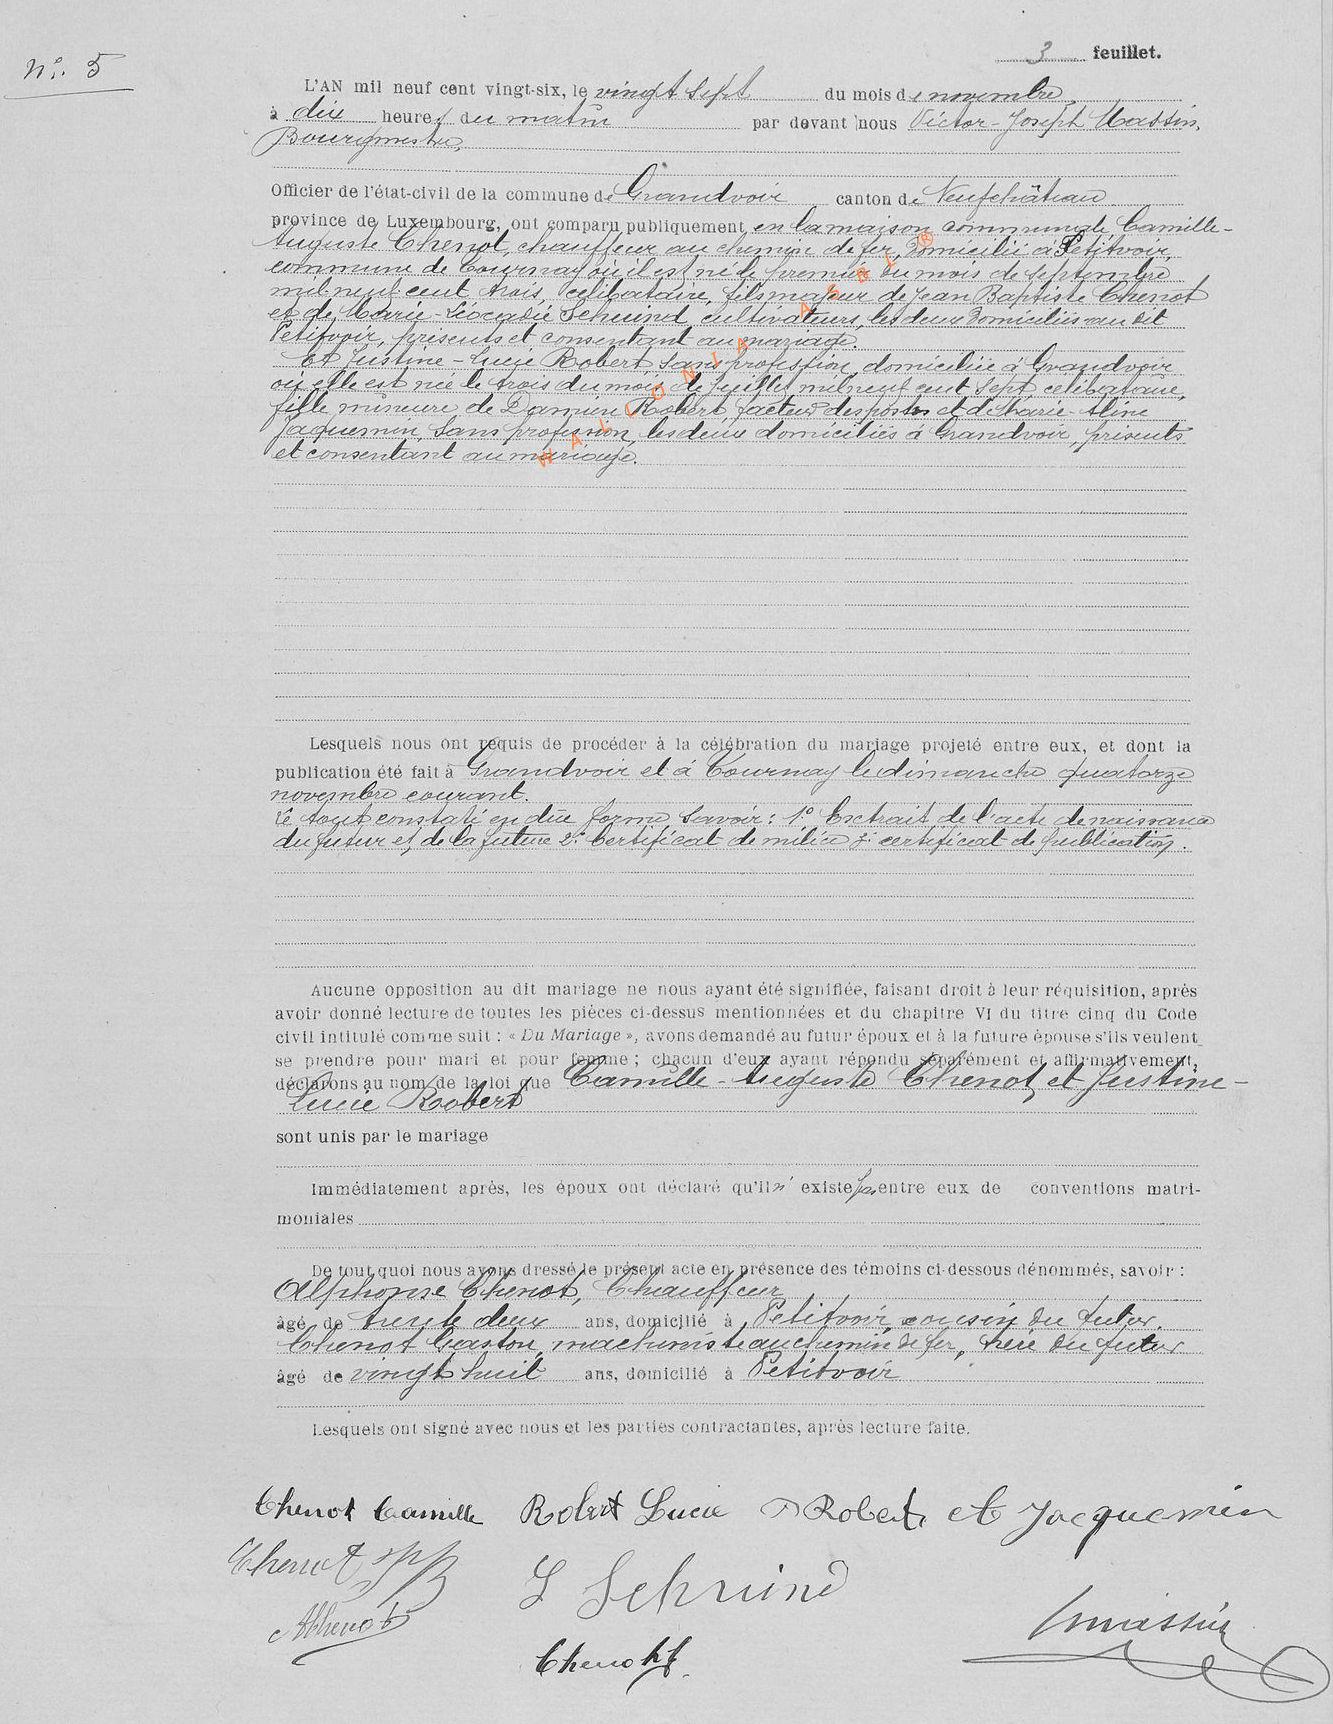 n°. 5
3 feuillet.
L'AN mil neuf cent vingt-six, le vingt sept du mois de novembre,
à dix heures du matin par devant nous Victor-Joseph Massin,
Bourgmestre,
Officier de l'état-civil de la commune de Grandvoir canton de Neufchâteau
province de Luxembourg, ont comparu publiquement en la maison communale, Camille-
Auguste Chenot, chauffeur au chemin de fer, domicilié à Petitvoir,
commune de Tournay où il est né le premier du mois de septembre
mil neuf cent trois, célibataire, fils majeur de Jean Baptiste Chenot
et de Marie-Léocadie Schwind, cultivateurs, les deux domiciliés au dit
Petitvoir, présents et consentant au mariage.
Et Justine-Lucie Robert, sans profession, domiciliée à Grandvoir
où elle est née le trois du mois de juillet mil neuf cent sept, célibataire,
fille mineure de Damien Robert, facteur des postes et de Marie-Aline
Jaquemin, sans profession, les deux domiciliés à Grandvoir, présents
et consentant au mariage.
WALLONIA ASBL ®
Lesquels nous ont requis de procéder à la célébration du mariage projeté entre eux, et dont la
publication été fait à Grandvoir et à Tournay le dimanche quatorze
novembre courant.
le tout constaté en dûe forme savoir: 1° Extrait de l'acte de naissance
du futur et de la future 2° Certificat de milice 3° certificat de publication.
Aucune opposition au dit mariage ne nous ayant été signifiée, faisant droit à leur réquisition, après
avoir donné lecture de toutes les pièces ci-dessus mentionnées et du chapitre VI du titre cinq du Code
civil intitulé comme suit : « Du Mariage », avons demandé au futur époux et à la future épouse s'ils veulent
se prendre pour mari et pour femme ; chacun d'eux ayant répondu séparément et affirmativement,
déclarons au nom de la loi que Camille-Auguste Chenot et Justine-
Lucie Robert
sont unis par le mariage
Immédiatement après, les époux ont déclaré qu'il n' existe pas entre eux de conventions matri-
moniales
De tout quoi nous avons dressé le présent acte en présence des témoins ci-dessous dénommés, savoir :
Alphonse Chenot, Chauffeur
âgé de trente deux ans, domicilié à Petitvoir, cousin du futur.
Chenot Gaston, machiniste au chemin de fer, frère du futur
âgé de vingt huit ans, domicilié à Petitvoir
Lesquels ont signé avec nous et les parties contractantes, après lecture faite.
Chenot Camille Robert Lucie D Robert et Jacquemin
Chenot JB
L Schwind
AChenot
Chenot
Vmassin